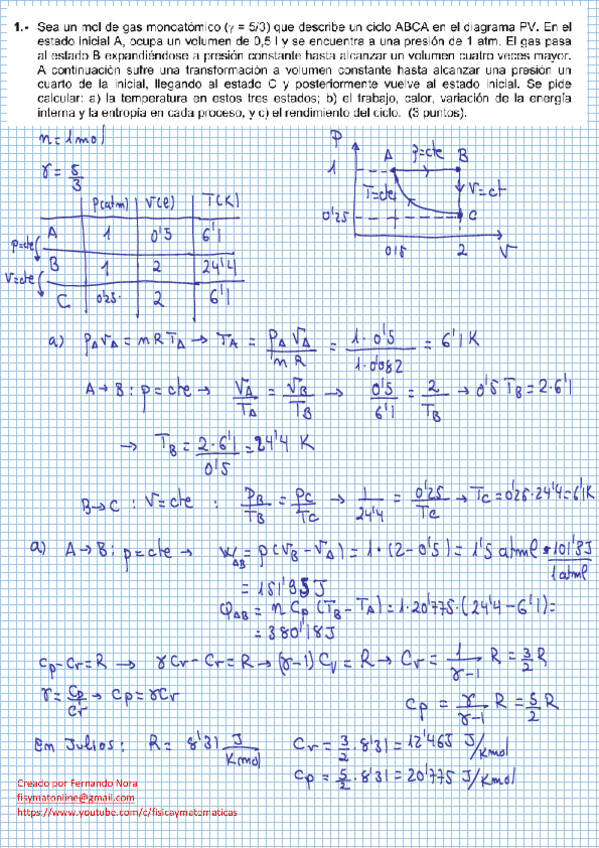 1.- Sea un mol de gas moncatómico (γ = 5/3) que describe un ciclo ABCA en el diagrama PV. En el
estado inicial A, ocupa un volumen de 0,5 l y se encuentra a una presión de 1 atm. El gas pasa
al estado B expandiéndose a presión constante hasta alcanzar un volumen cuatro veces mayor.
A continuación sufre una transformación a volumen constante hasta alcanzar una presión un
cuarto de la inicial, llegando al estado C y posteriormente vuelve al estado inicial. Se pide
calcular: a) la temperatura en estos tres estados; b) el trabajo, calor, variación de la energía
interna y la entropía en cada proceso, y c) el rendimiento del ciclo. (3 puntos).
n = 1 mol
γ = 5/3
P(atm) V(l) T(K)
A 1 0'5 6'1
p=cte
B 1 2 24'4
V=cte
C. 0'25 2 6'1
P
1 A p=cte B
T=cte V=ct
0'25 C
0'5 2 V
a) p_A V_A = n R T_A → T_A = p_A V_A / n R = 1·0'5 / 1·0'082 = 6'1 K
A → B : p = cte → V_A/T_A = V_B/T_B → 0'5/6'1 = 2/T_B → 0'5 T_B = 2·6'1
→ T_B = 2·6'1 / 0'5 = 24'4 K
B → C : V = cte : P_B/T_B = P_C/T_C → 1/24'4 = 0'25/T_C → T_C = 0'25·24'4 = 6'1K
a) A → B : p = cte → W_AB = p(V_B − V_A) = 1·(2−0'5) = 1'5 atm l · 101'3J / 1 atm l
= 151'95 J
Q_AB = n Cp (T_B − T_A) = 1·20'775·(24'4−6'1) =
= 380'18 J
Cp − Cv = R → γCv − Cv = R → (γ−1) Cv = R → Cv = 1/(γ−1) R = 3/2 R
γ = Cp/Cv → Cp = γCv
Cp = γ/(γ−1) R = 5/2 R
En Julios : R = 8'31 J/K mol
Cv = 3/2 · 8'31 = 12'465 J/K mol
Cp = 5/2 · 8'31 = 20'775 J/K mol
Creado por Fernando Nora
fisymatonline@gmail.com
https://www.youtube.com/c/fisicaymatematicas